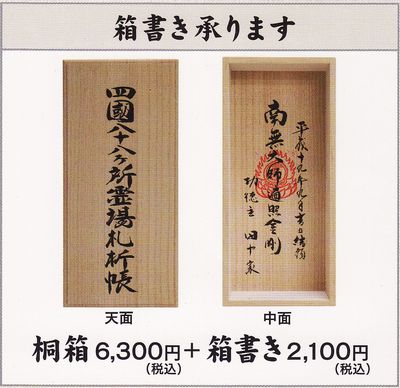 箱書き承ります
四國八十八ヶ所霊場札折帳
平成十九年九月吉日結願
南無大師遍照金剛
功徳主 田中家
天面
中面
桐箱6,300円(税込)+箱書き2,100円(税込)